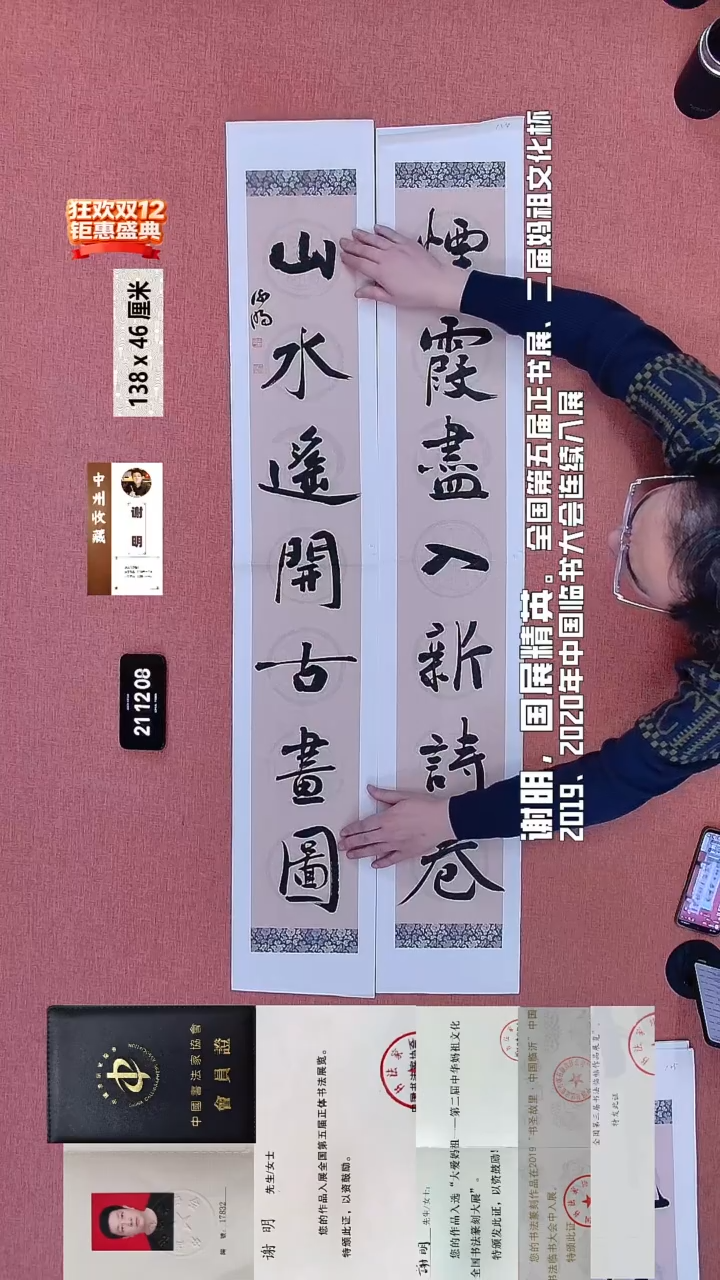 狂欢双12
钜惠盛典
138 x 46 厘米
21 12 08
煙霞盡入新詩卷
山水遥開古畫圖
谢明，国展精英。全国第五届正书展、二届妈祖文化杯
2019、2020年中国临书大会连续入展
中國書法家協會
會員證
編號：17832
谢明 先生/女士
您的作品入展全国第五届正体书法展览。
特颁此证，以资鼓励。
謝明 先生/女士：
您的作品入选“大爱妈祖——第二届中华妈祖文化
全国书法篆刻大展”。
特颁发此证，以资鼓励！
您的书法篆刻作品在2019“书圣故里·中国临沂”中国
书法临书大会中入展。
特颁此证
全国第三届书法临帖作品展览”，
特发此证